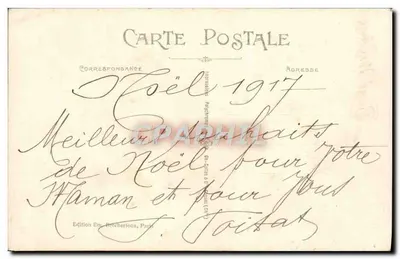 CARTE POSTALE
CORRESPONDANCE
ADRESSE
Noël 1917
Meilleurs souhaits
de Noël pour votre
Maman et pour vous
Edition Paris